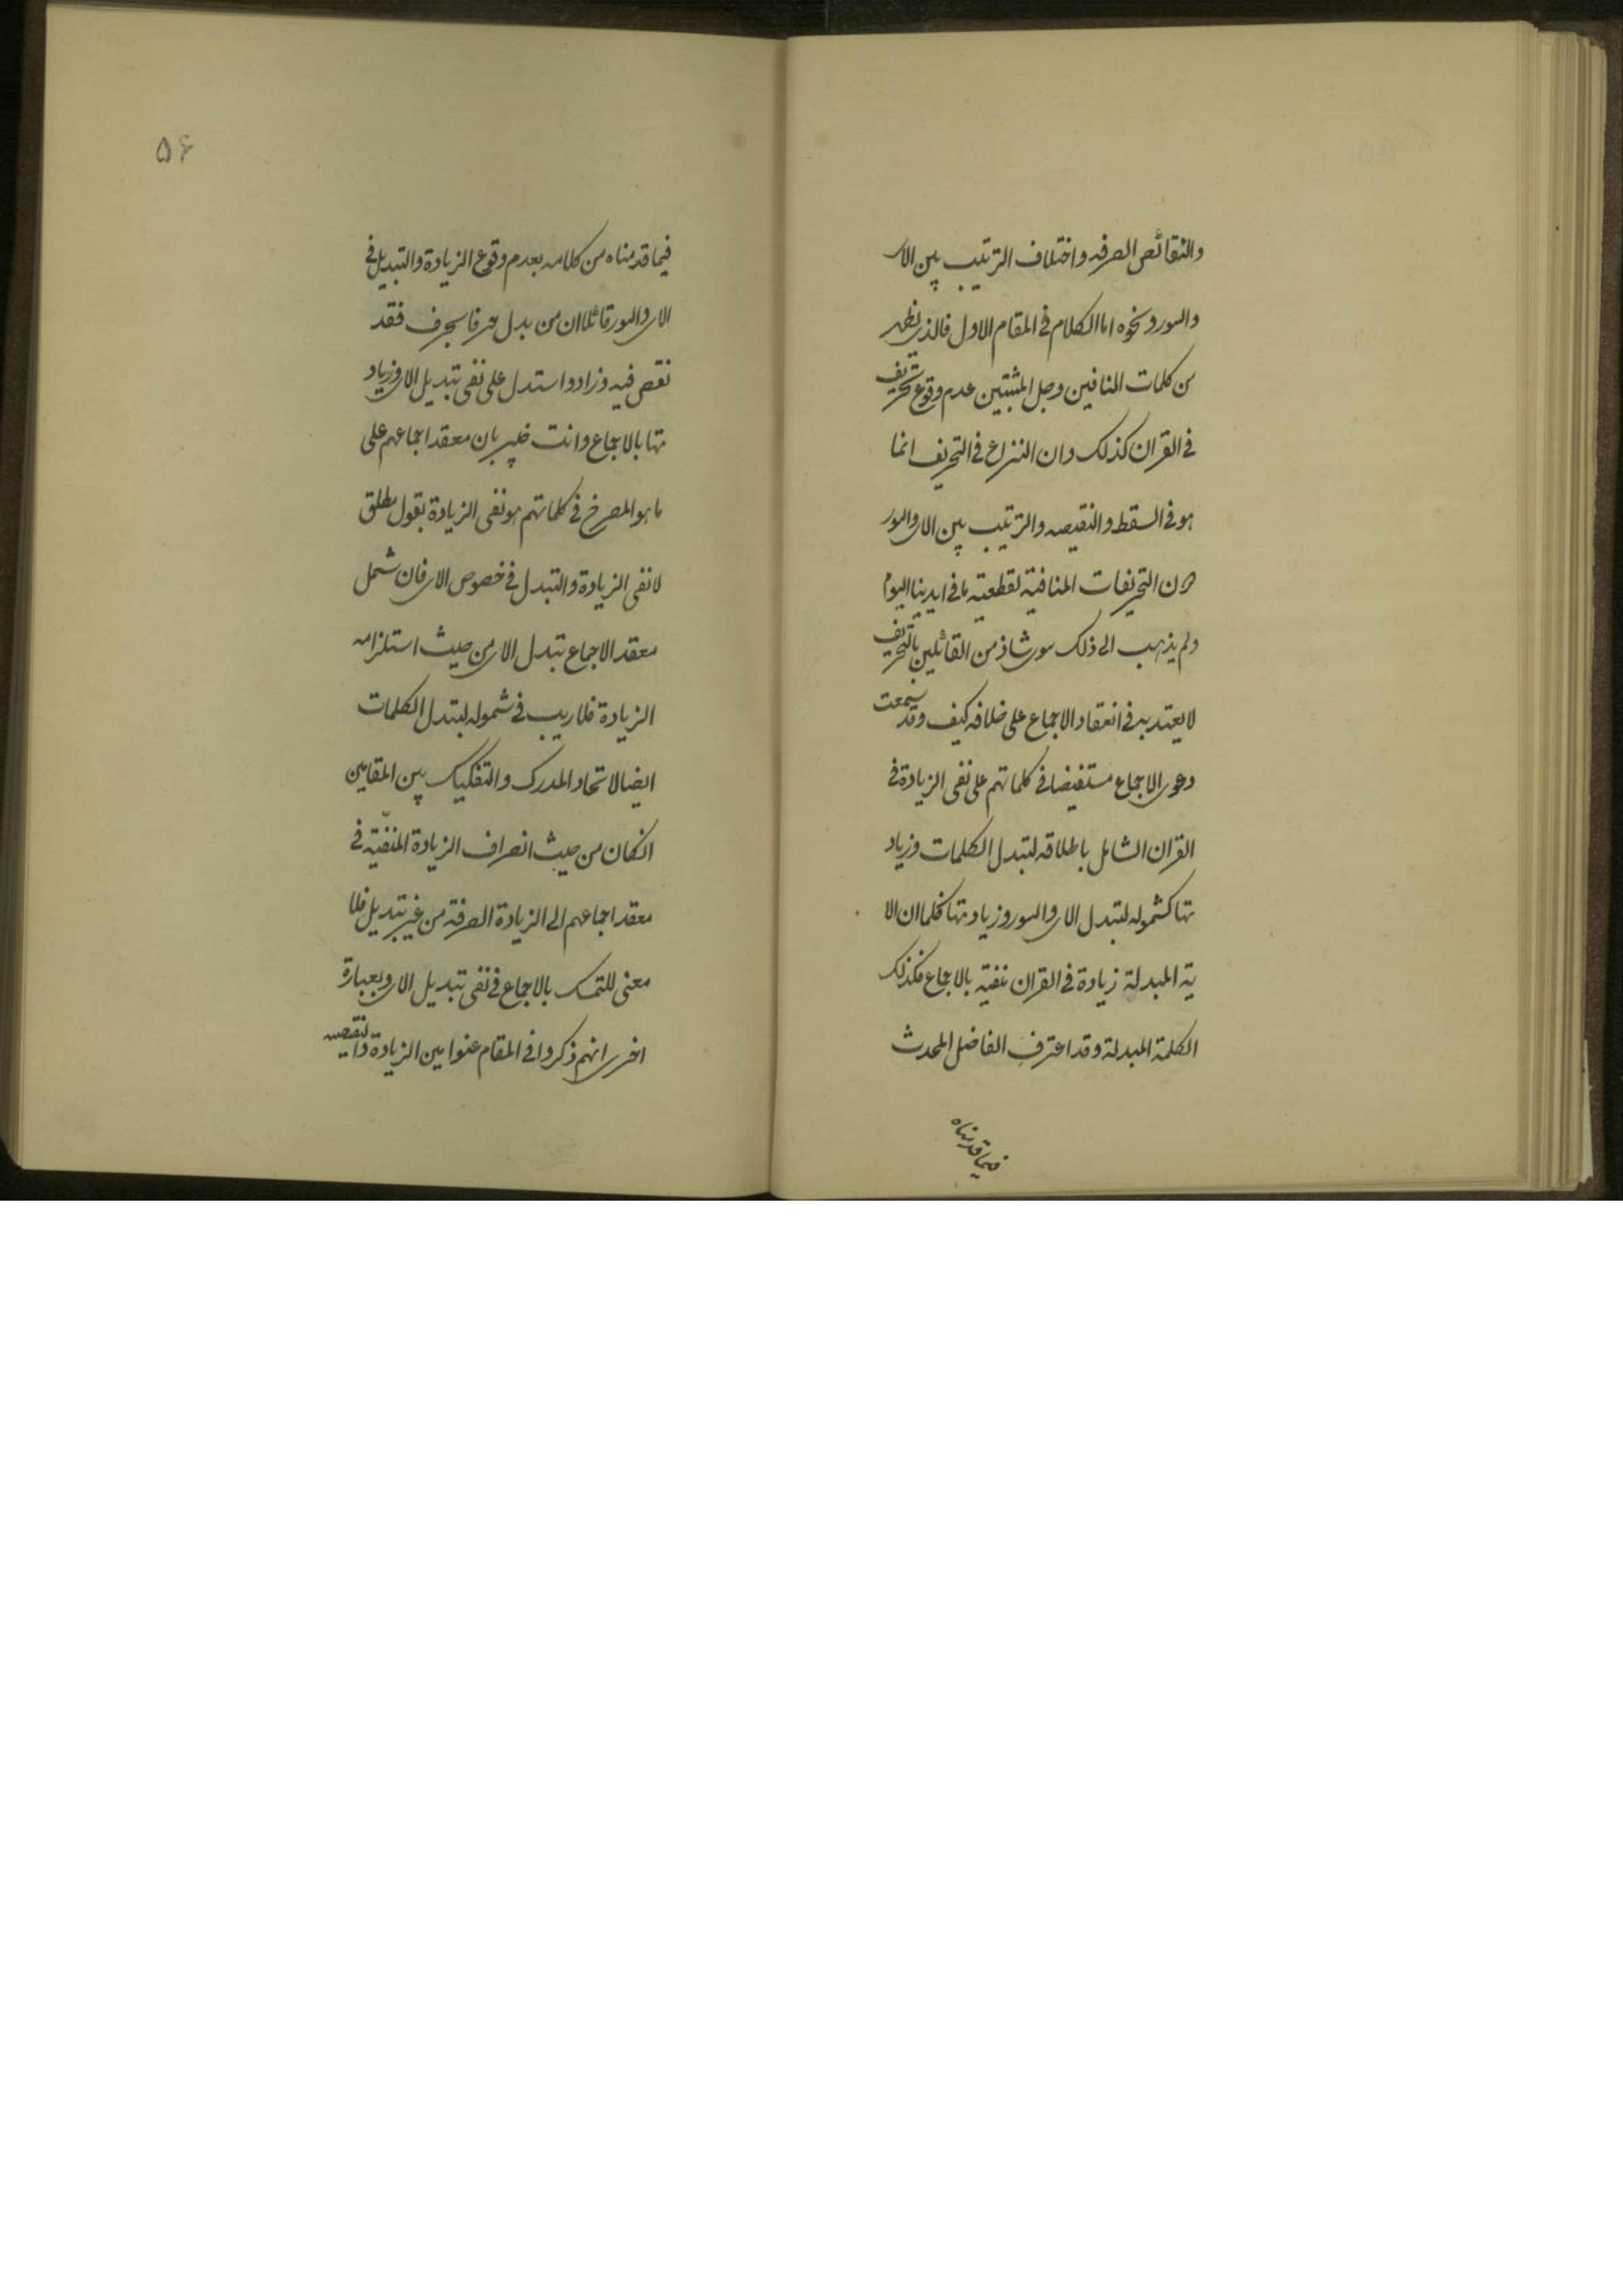 والنقائص الصرفه واختلاف الترتيب بين الای
والسور ونحوه اما الكلام فی المقام الاول فالذی يظهر
من كلمات النافين وجل المثبتين عدم وقوع تحريف
فی القران كذلك وان النزاع فی التحريف انما
هو فی السقط والنقيصه والترتيب بين الای والسور
دون التحريفات المنافية لقطعية ما فی ايدينا اليوم
ولم يذهب الی ذلك سوی شاذ من القائلين بالتحريف
لا يعتد به فی انعقاد الاجماع علی خلافه كيف وقد سمعت
دعوی الاجماع مستفيضا فی كلماتهم علی نفی الزيادة فی
القران الشامل باطلاقه لتبدل الكلمات وزياد
تها كشموله لتبدل الای والسور وزيادتها فكما ان الا
ية المبدلة زيادة فی القران منفية بالاجماع فكذلك
الكلمة المبدلة وقد اعترف الفاضل المحدث
فيما قدمناه
۵۶
فيما قدمناه من كلامه بعدم وقوع الزيادة والتبديل فی
الای والسور قائلا ان من بدل حرفا بحرف فقد
نقص فيه وزاد واستدل علی نفی تبديل الای وزياد
تها بالاجماع وانت خبير بان معقد اجماعهم علی
ما هو المصرح فی كلماتهم هو نفی الزيادة بقول مطلق
لا نفی الزيادة والتبدل فی خصوص الای فان شمل
معقد الاجماع تبدل الای من حيث استلزامه
الزيادة فلا ريب فی شموله لتبدل الكلمات
ايضا لاتحاد المدرك والتفكيك بين المقامين
ان كان من حيث انصراف الزيادة المنفيّة فی
معقد اجماعهم الی الزيادة الصرفة من غير تبديل فلا
معنی للتمسك بالاجماع فی نفی تبديل الای وبعبارة
اخری انهم ذكروا فی المقام عنوانين الزيادة والنقيصه